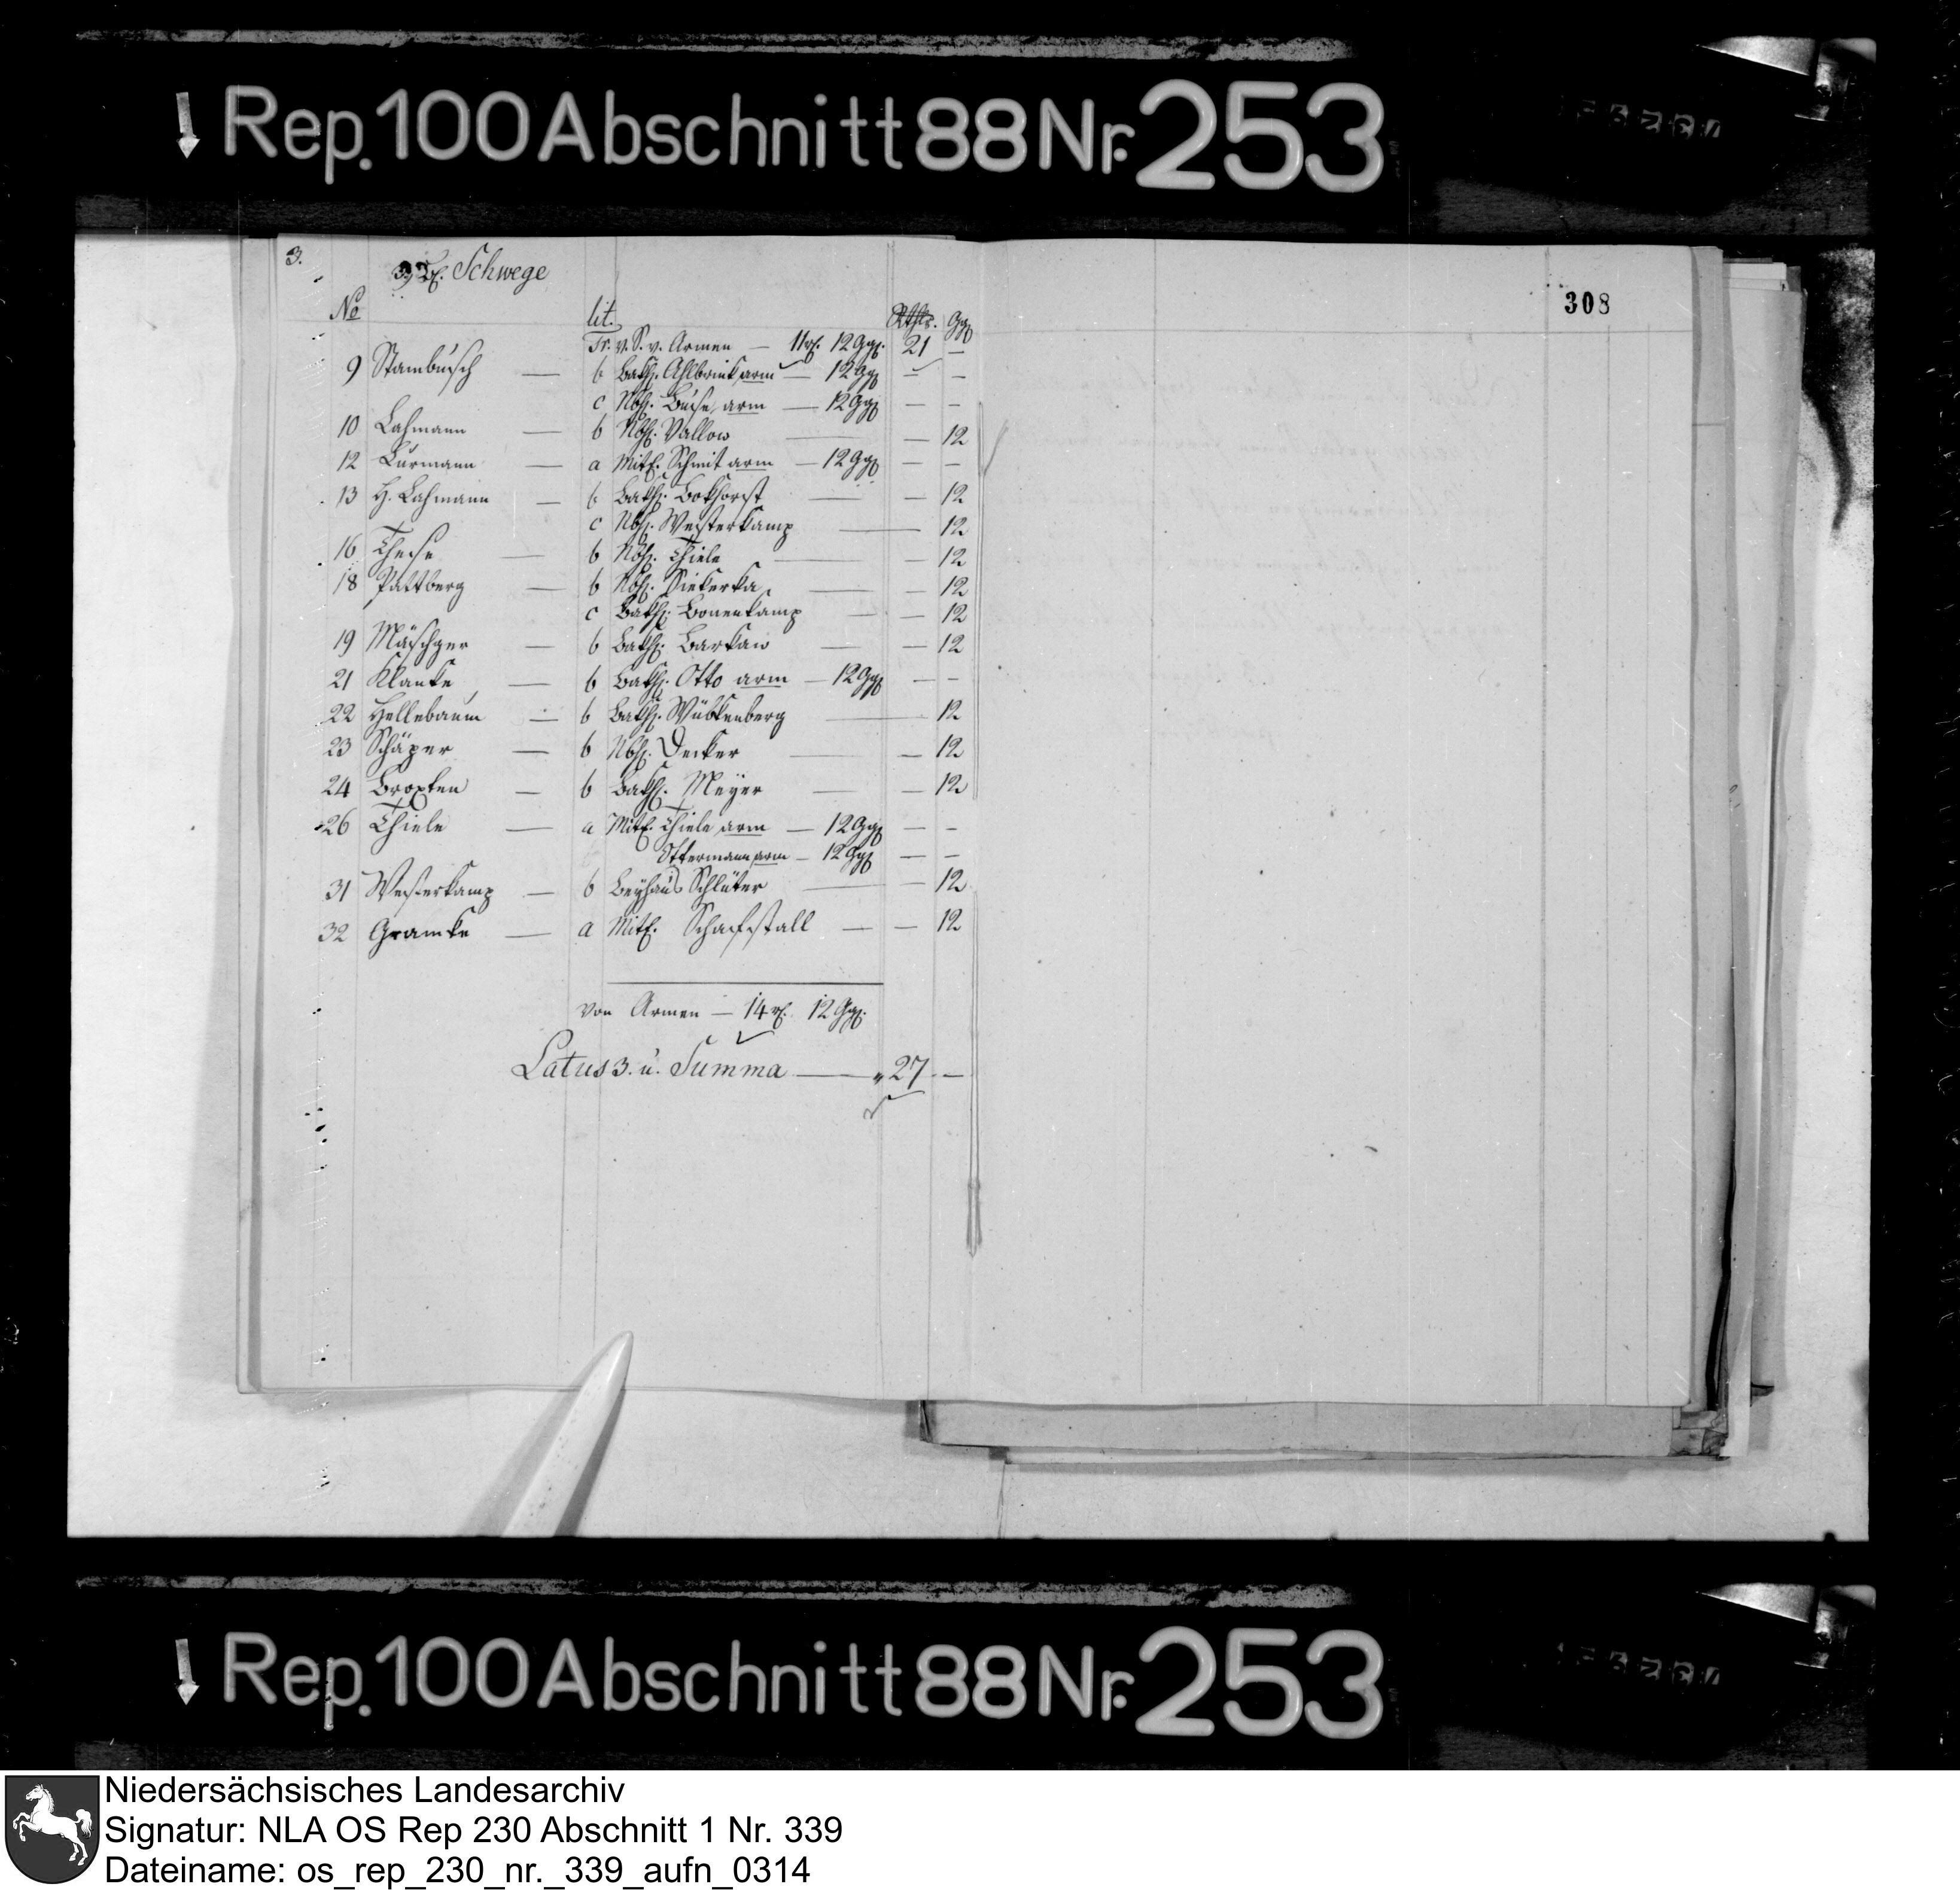 Rep. 100 Abschnitt 88 Nr. 253
3.
Schwege
308
No lit. Rthlr. Ggr
Tr. v. S. v. Armen — 11 rt. 12 Ggr. 21 —
9 Stambusch — b Bakh. Ahlbrink arm — 12 Ggr — —
c Nbh. Buse arm — 12 Ggr — —
10 Lahmann — b Nbh. Vallow — — 12
12 Lurmann — a Mitb. Schmit arm — 12 Ggr — —
13 H. Lahmann — b Bakh. Bokhorst — — 12
c Nbh. Westerkamp — 12
16 These — b Nbh. Thiele — — 12
18 Pattberg — b Nbh. Siekerka — — 12
c Bakh. Bonenkamp — — 12
19 Mäschger — b Bakh. Barkaw — — 12
21 Klanke — b Bakh. Otto arm — 12 Ggr — —
22 Hellebaum — b Bakh. Wübkenberg — 12
23 Schäper — b Nbh. Decker — — 12
24 Broxten — b Bakh. Meyer — — 12
26 Thiele — a Mitb. Thiele arm — 12 Ggr — —
Ostermann arm — 12 Ggr — —
31 Westerkamp — b Leyhaus Schlüter — — 12
32 Gramke — a Mitb. Schafstall — — 12
von Armen — 14 rt. 12 Ggr.
Latus 3. u. Summa — 27. —
Rep. 100 Abschnitt 88 Nr. 253
Niedersächsisches Landesarchiv
Signatur: NLA OS Rep 230 Abschnitt 1 Nr. 339
Dateiname: os_rep_230_nr._339_aufn_0314